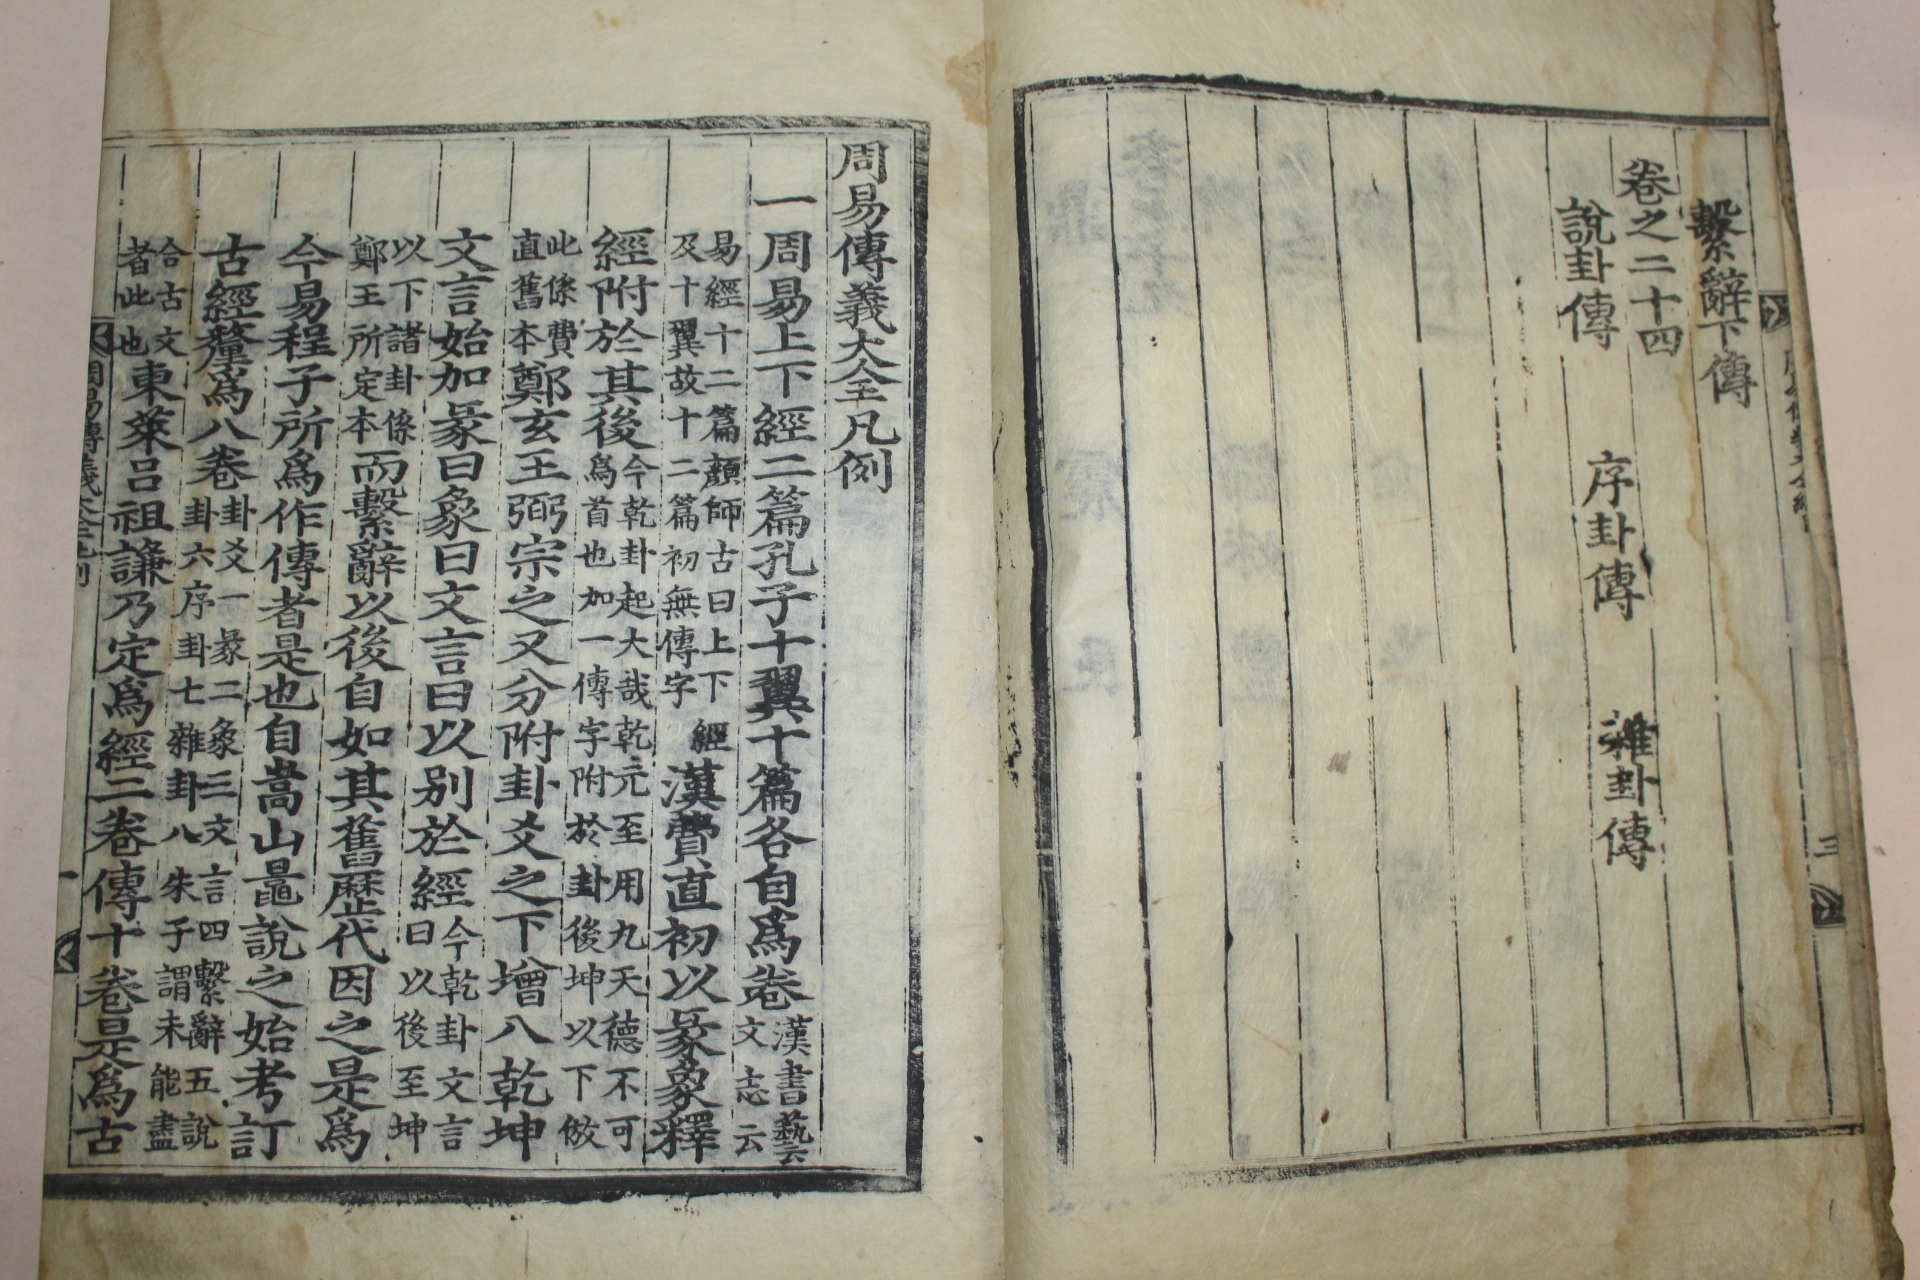 繫辭下傳
卷之二十四
說卦傳 序卦傳 雜卦傳
三
周易傳義大全凡例
一周易上下經二篇孔子十翼十篇各自爲卷漢書藝文志云
易經十二篇顏師古曰上下經及十翼故十二篇初無傳字漢費直初以彖象釋
經附於其後今乾卦起大哉乾元至用九天德不可爲首也加一傳字附於卦後坤以下倣
此條費直舊本鄭玄王弼宗之又分附卦爻之下增入乾坤
文言始加彖曰象曰文言曰以別於經今乾卦文言曰以後至坤
以下諸卦條鄭王所定本而繫辭以後自如其舊歷代因之是爲
今易程子所爲作傳者是也自嵩山鼂說之始考訂
古經釐爲八卷卦爻一彖二象三文言四繫辭五說卦六序卦七雜卦八朱子謂未能盡
合古文者此也東萊呂祖謙乃定爲經二卷傳十卷是爲古
周易傳義大全凡例 一